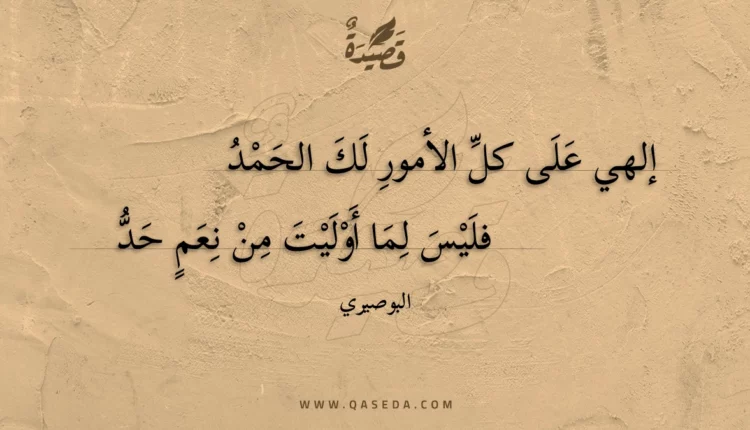 قَصِيْدَةٌ
إلهي عَلَى كلِّ الأمورِ لَكَ الحَمْدُ
فلَيْسَ لِمَا أَوْلَيْتَ مِنْ نِعَمٍ حَدُّ
البوصيري
WWW.QASEDA.COM